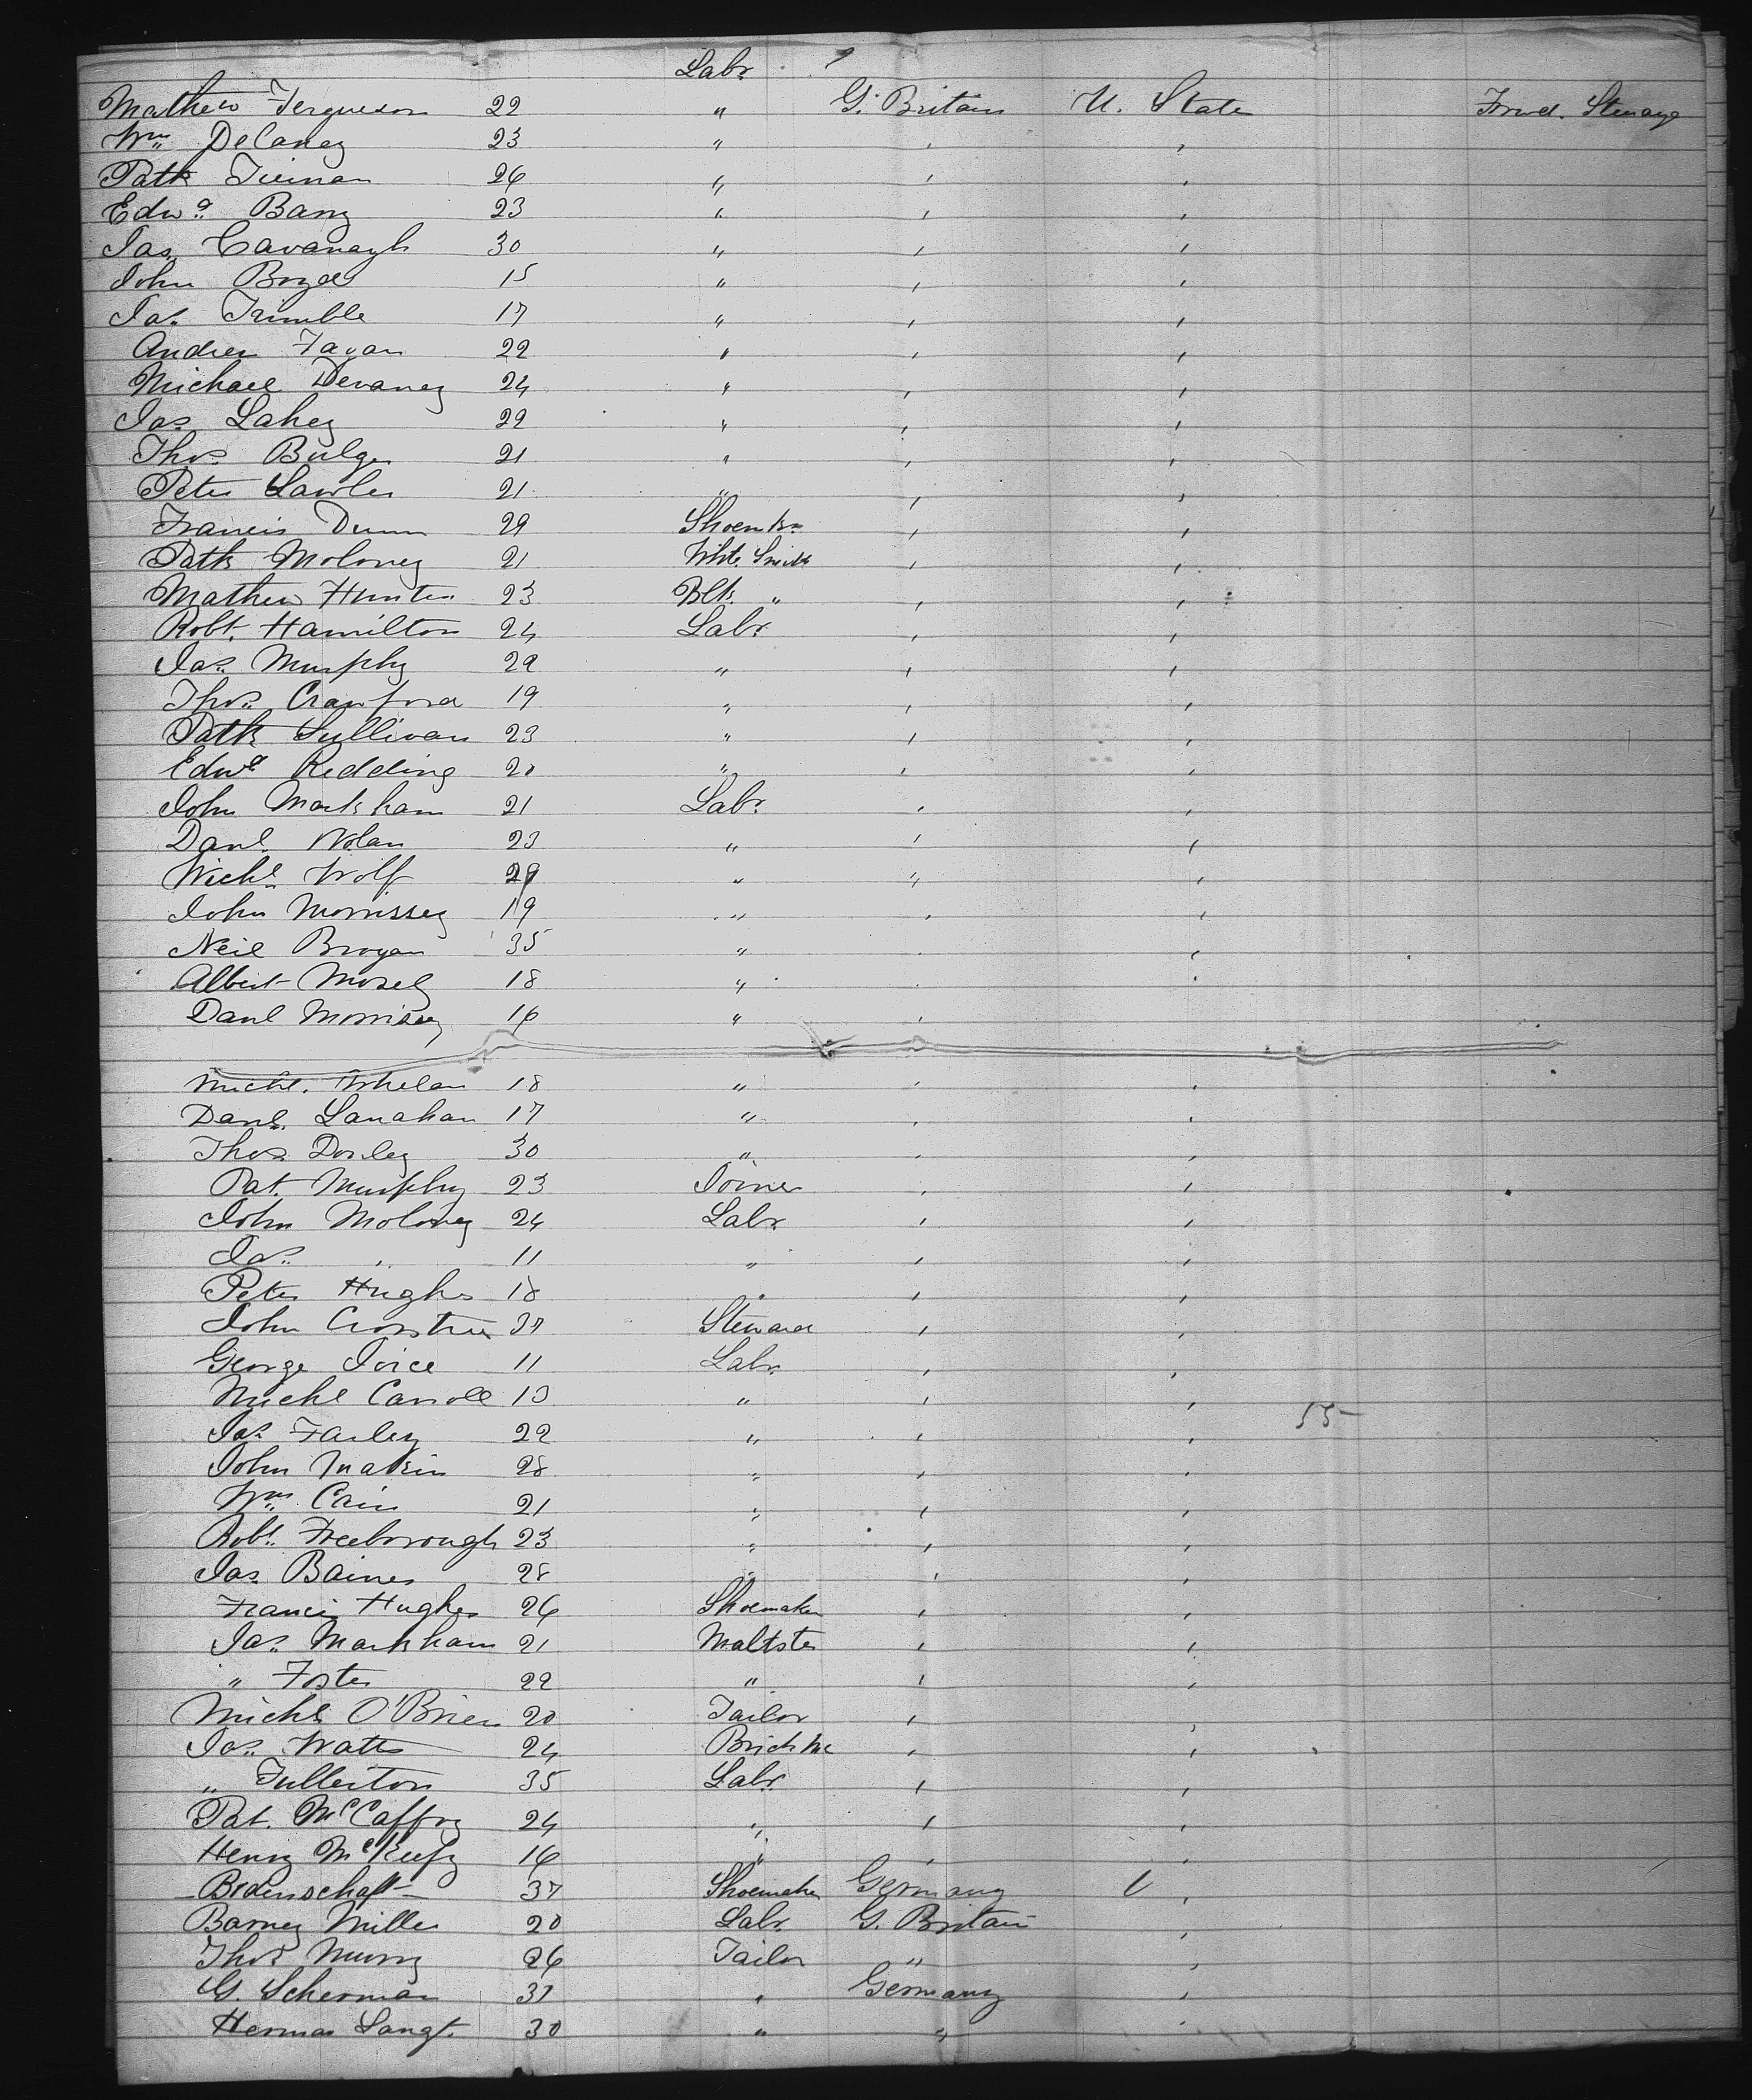 Labr.
Mathew Fergueson 22 " G. Britain U. State Frwd. Steerage
Wm Delaney 23 " " "
Patk Tiernan 26 " " "
Edwd. Barry 23 " " "
Jas. Cavanagh 30 " " "
John Boyd 15 " " "
Jas. Trimble 17 " " "
Andrew Fagan 22 " " "
Michael Devaney 24 " " "
Jas. Lahey 29 " " "
Thos. Bulger 21 " " "
Peter Lawler 21 " " "
Francis Dunn 29 Shoemkr " "
Patk Moloney 21 White Smith " "
Mathew Hunter 23 Blk. " " "
Robt. Hamilton 24 Labr. " "
Jas. Murphy 29 " " "
Thos. Crawford 19 " " "
Patk Sullivan 23 " " "
Edwd Redding 20 " " "
John Markham 21 Labr. " "
Danl. Nolan 23 " " "
Michl. Wolf 29 " " "
John Morrissey 19 " " "
Neil Brogan 35 " " "
Albert Mosely 18 " " "
Danl Morrisey 16 " "
Michl. Whelan 18 " " "
Danl. Lanahan 17 " " "
Thos. Donley 30 " " "
Pat. Murphy 23 Joiner " "
John Moloney 24 Labr. " "
Jas. " 11 " " "
Peter Hughes 18 " " "
John Crosstree Steward " "
George Joice 11 Labr. " "
Michl Carroll 13 " " "
Jas. Farley 22 " " " 55
John Makin 28 " " "
Wm. Cain 21 " " "
Robt. Freeborough 23 " " "
Jas. Baines 28 " " "
Francis Hughes 26 Shoemaker " "
Jas. Markham 21 Maltster " "
" Foster 22 " " "
Michl O'Brien 20 Tailor " "
Jas. Watts 24 Brick Mk " "
" Fullerton 35 Labr. " "
Pat. McCaffry 24 " " "
Henry McKeefy 16 " " "
Bodenschaft 37 Shoemaker Germany "
Barney Miller 20 Labr. G. Britain "
Thos Murry 26 Tailor " "
G. Scherman 37 " Germany "
Herman Langt. 30 " " "